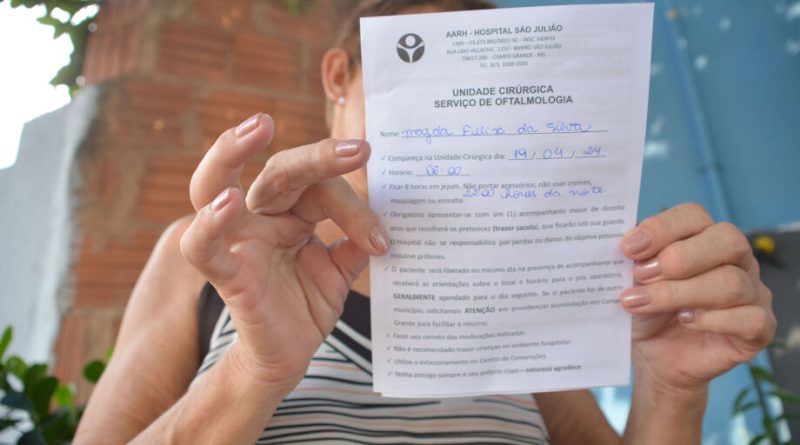 AARH - HOSPITAL SÃO JULIÃO
CNPJ – 03.273.885/0001-50 – INSC. ISENTO
RUA LINO VILLACHÁ, 1250 - BAIRRO SÃO JULIÃO
79017-200 - CAMPO GRANDE - MS
TEL. (67) 3358-1500
UNIDADE CIRÚRGICA
SERVIÇO DE OFTALMOLOGIA
Nome: Magda Felix da Silva
✓ Compareça na Unidade Cirúrgica dia: 19 / 04 / 24
✓ Horário: 06:00
✓ Ficar 8 horas em jejum. Não portar acessórios, não usar cremes,
maquiagem ou esmalte. 22:00 horas da noite
✓ Obrigatório apresentar-se com um (1) acompanhante maior de dezoito
anos que recolherá os pretences (trazer sacola), que ficarão sob sua guarda.
O Hospital não se responsabiliza por perdas ou danos de objetos pessoais,
inclusive próteses.
✓ O paciente será liberado no mesmo dia na presença de acompanhante que
receberá as orientações sobre o local e horário para o pós operatório,
GERALMENTE agendado para o dia seguinte. Se o paciente for de outro
município, solicitamos ATENÇÃO em providenciar acomodação em Campo
Grande para facilitar o retorno.
✓ Fazer uso correto das medicações indicadas
✓ Não é recomendado trazer crianças no ambiente hospitalar
✓ Utilize o estacionamento no Centro de Convenções
✓ Tenha consigo sempre o seu próprio copo – natureza agradece